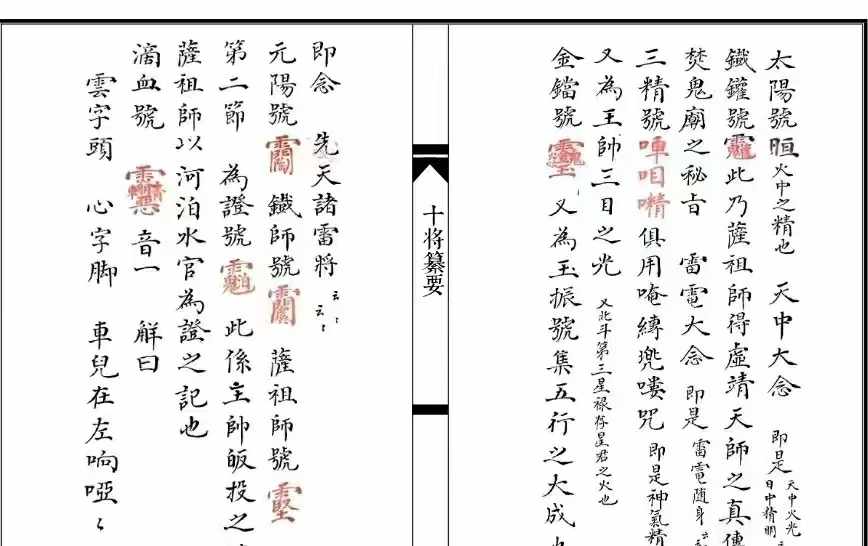 太陽號 晅 火中之精也 天中大念 即是 天中火光 日中精明
鐵鑵號 此乃薩祖師得虛靖天師之真傳
焚鬼廟之秘旨 雷電大念 即是 雷電随身
三精號 唓咱𠾱 俱用唵縛兠嘍咒 即是神氣精
又為王帥三目之光 又北斗第三星禄存星君之火也
金鐺號 又為玉振號集五行之大成
十将纂要
即念 先天諸雷将 云云
元陽號 鐵師號 薩祖師號
第二節 為證號 此係主帥皈投之
薩祖師以河泊水官為證之記也
滴血號 音一 解曰
雲字頭 心字脚 車兒在左响啞